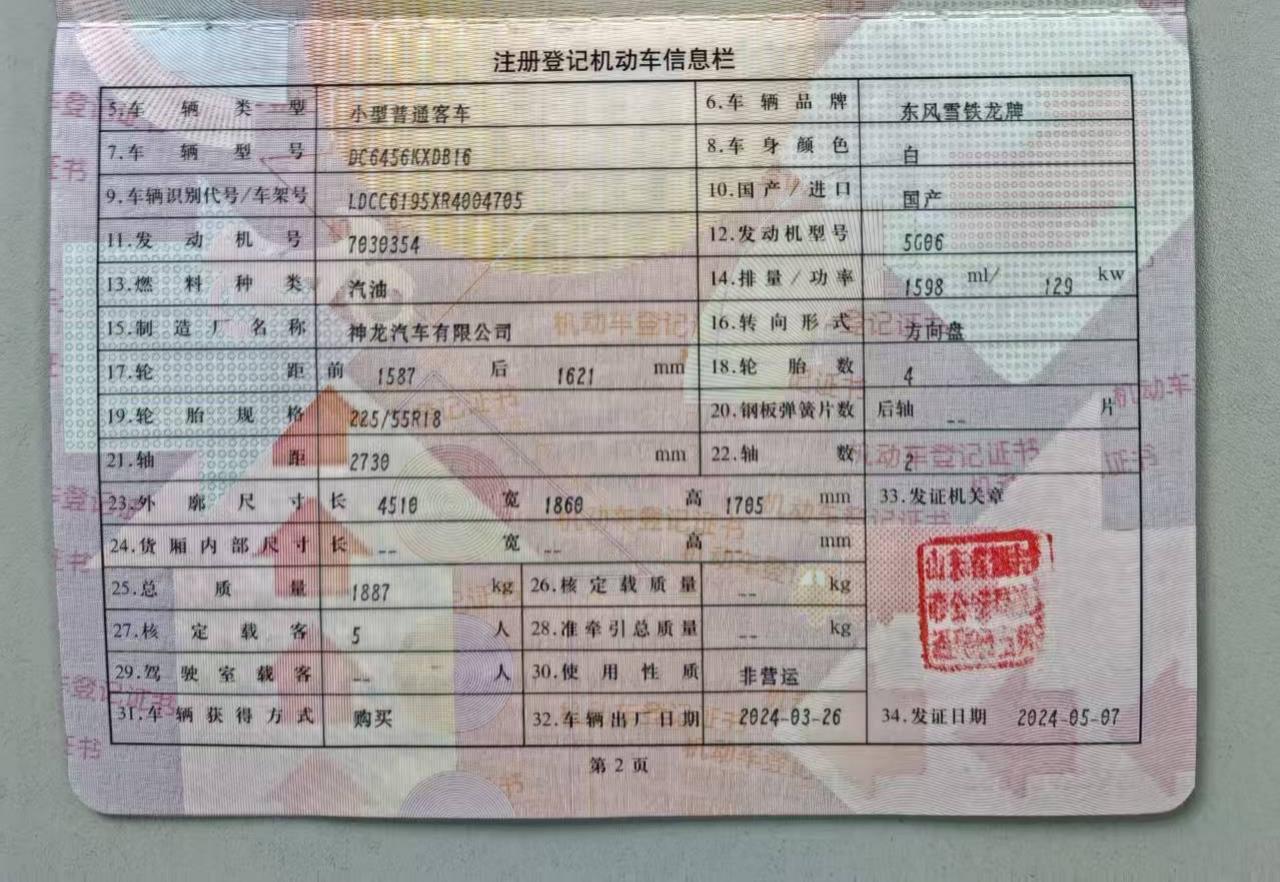 注册登记机动车信息栏
5.车辆类型 小型普通客车 6.车辆品牌 东风雪铁龙牌
7.车辆型号 DC6456KXDB16 8.车身颜色 白
9.车辆识别代号/车架号 LDCC6195XR4004705 10.国产/进口 国产
11.发动机号 7030354 12.发动机型号 5G06
13.燃料种类 汽油 14.排量/功率 1598 ml/ 129 kw
15.制造厂名称 神龙汽车有限公司 16.转向形式 方向盘
17.轮距 前 1587 后 1621 mm 18.轮胎数 4
19.轮胎规格 225/55R18 20.钢板弹簧片数 后轴 -- 片
21.轴距 2730 mm 22.轴数 2
23.外廓尺寸 长 4510 宽 1860 高 1705 mm 33.发证机关章
24.货厢内部尺寸 长 -- 宽 -- 高 mm
25.总质量 1887 kg 26.核定载质量 -- kg
27.核定载客 5 人 28.准牵引总质量 -- kg
29.驾驶室载客 -- 人 30.使用性质 非营运
31.车辆获得方式 购买 32.车辆出厂日期 2024-03-26 34.发证日期 2024-05-07
第 2 页